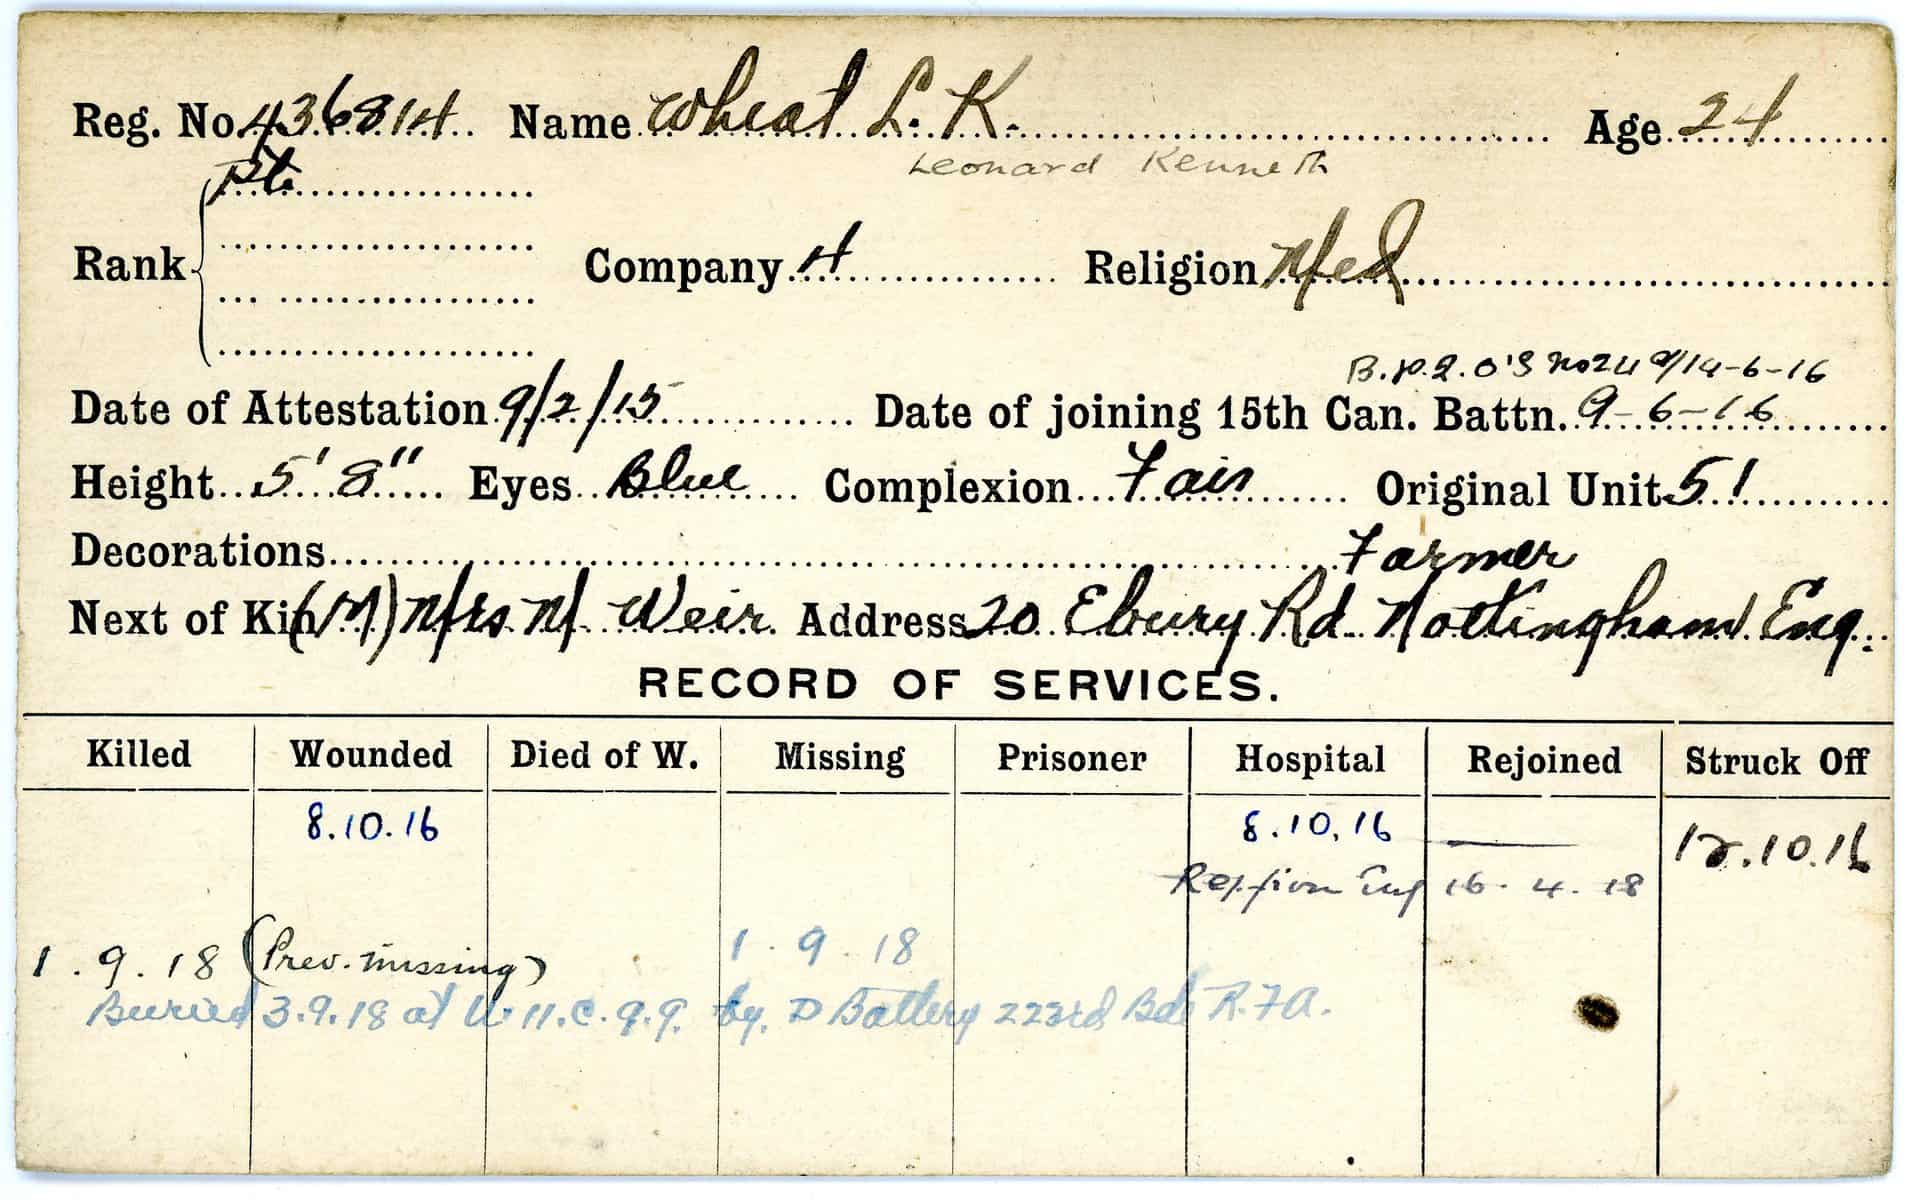 Reg. No. 436814 Name Wheat L. K. Age 24
Leonard Kenneth
Pte
Rank Company 4 Religion Med
B.P.2.O'S No24 d/14-6-16
Date of Attestation 9/2/15 Date of joining 15th Can. Battn. 9-6-16
Height 5' 8" Eyes Blue Complexion Fair Original Unit 51
Decorations Farmer
Next of Kin (M) Mrs M. Weir Address 20 Ebury Rd. Nottingham Eng.
RECORD OF SERVICES.
Killed Wounded Died of W. Missing Prisoner Hospital Rejoined Struck Off
8.10.16 8.10.16 12.10.16
from Eng 16.4.18
1.9.18 (Prev. missing) 1.9.18
Buried 3.9.18 at U.11.c.9.9. by. D Battery 223rd Bde R.F.A.